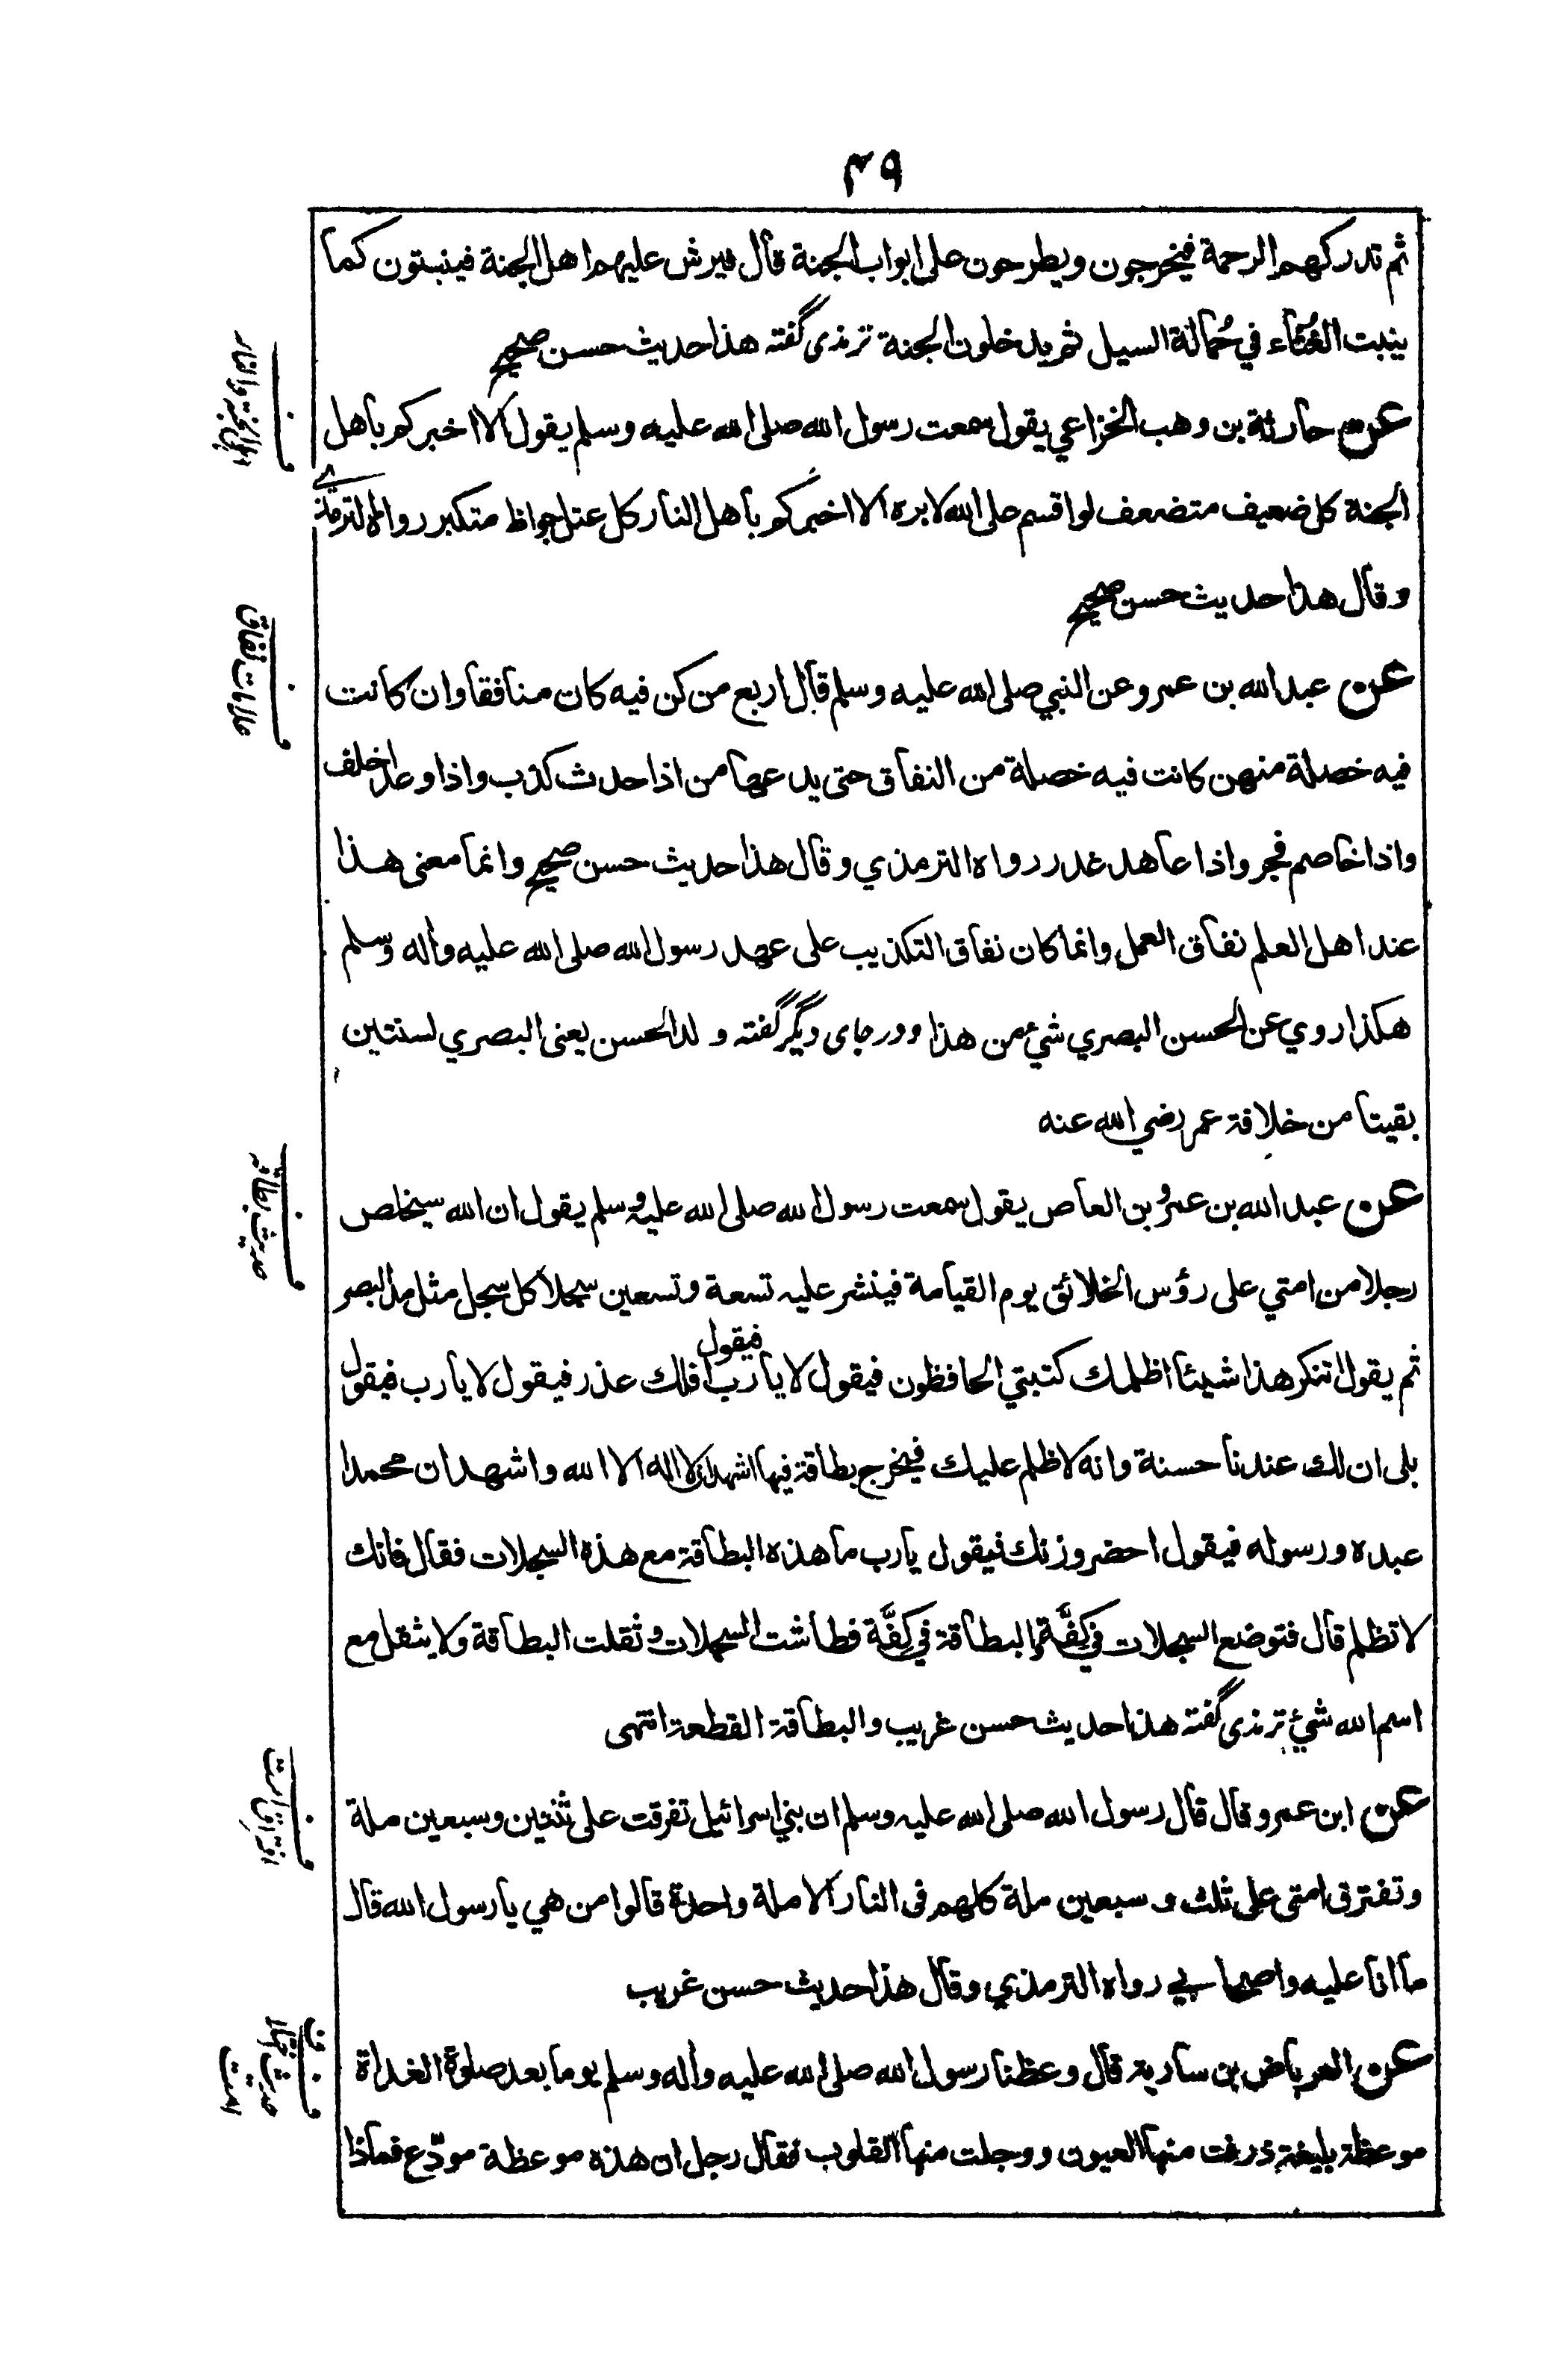 ۴۹
ثم تدركهم الرحمة فيخرجون ويطرحون على ابواب الجنة قال فيرش عليهم اهل الجنة فينبتون كما
ينبت الغُثاء في حُمالة السيل ثم يدخلون الجنة ترمذی گفته هذا حديث حسن صحيح
عن حارثة بن وهب الخزاعي يقول سمعت رسول الله صلى الله عليه وسلم يقول الا اخبركم بأهل
الجنة كل ضعيف متضعف لو اقسم على الله لابره الا اخبركم بأهل النار كل عتل جواظ متكبر رواه الترمذي
وقال هذا حديث حسن صحيح
عن عبد الله بن عمرو عن النبي صلى الله عليه وسلم قال اربع من كن فيه كان منافقا وان كانت
فيه خصلة منهن كانت فيه خصلة من النفاق حتى يدعها من اذا حدث كذب واذا وعد اخلف
واذا خاصم فجر واذا عاهد غدر رواه الترمذي وقال هذا حديث حسن صحيح وانما معنى هذا
عند اهل العلم نفاق العمل وانما كان نفاق التكذيب على عهد رسول الله صلى الله عليه واله وسلم
هكذا روي عن الحسن البصري شئ من هذا ودر جای دیگر گفته ولد الحسن يعنى البصري لسنتين
بقيتا من خلافة عمر رضي الله عنه
عن عبد الله بن عمرو بن العاص يقول سمعت رسول الله صلى الله عليه وسلم يقول ان الله سيخلص
رجلا من امتي على رؤس الخلائق يوم القيامة فينشر عليه تسعة وتسعين سجلا كل سجل مثل مد البصر
ثم يقول اتنكر هذا شيئا اظلمك كتبتي الحافظون فيقول لا يا رب فيقول افلك عذر فيقول لا يا رب فيقول
بلى ان لك عندنا حسنة وانه لا ظلم عليك فيخرج بطاقة فيها اشهد ان لا اله الا الله واشهد ان محمدا
عبده ورسوله فيقول احضر وزنك فيقول يا رب ما هذه البطاقة مع هذه السجلات فقال فانك
لا تظلم قال فتوضع السجلات في كِفَّة والبطاقة في كِفَّة فطاشت السجلات وثقلت البطاقة ولا يثقل مع
اسم الله شئ ترمذی گفته هذا حديث حسن غريب والبطاقة القطعة انتهى
عن ابن عمرو قال قال رسول الله صلى الله عليه وسلم ان بني اسرائيل تفرقت على ثنتين وسبعين ملة
وتفترق امتى على ثلث وسبعين ملة كلهم فى النار الا ملة واحدة قالوا من هي يا رسول الله قال
ما انا عليه واصحابي رواه الترمذي وقال هذا حديث حسن غريب
عن العرباض بن سارية قال وعظنا رسول الله صلى الله عليه واله وسلم يوما بعد صلوة الغداة
موعظة بليغة ذرفت منها العيون ووجلت منها القلوب فقال رجل ان هذه موعظة مودّع فماذا
علامات نفاق
حدیث بطاقه
افتراق امت